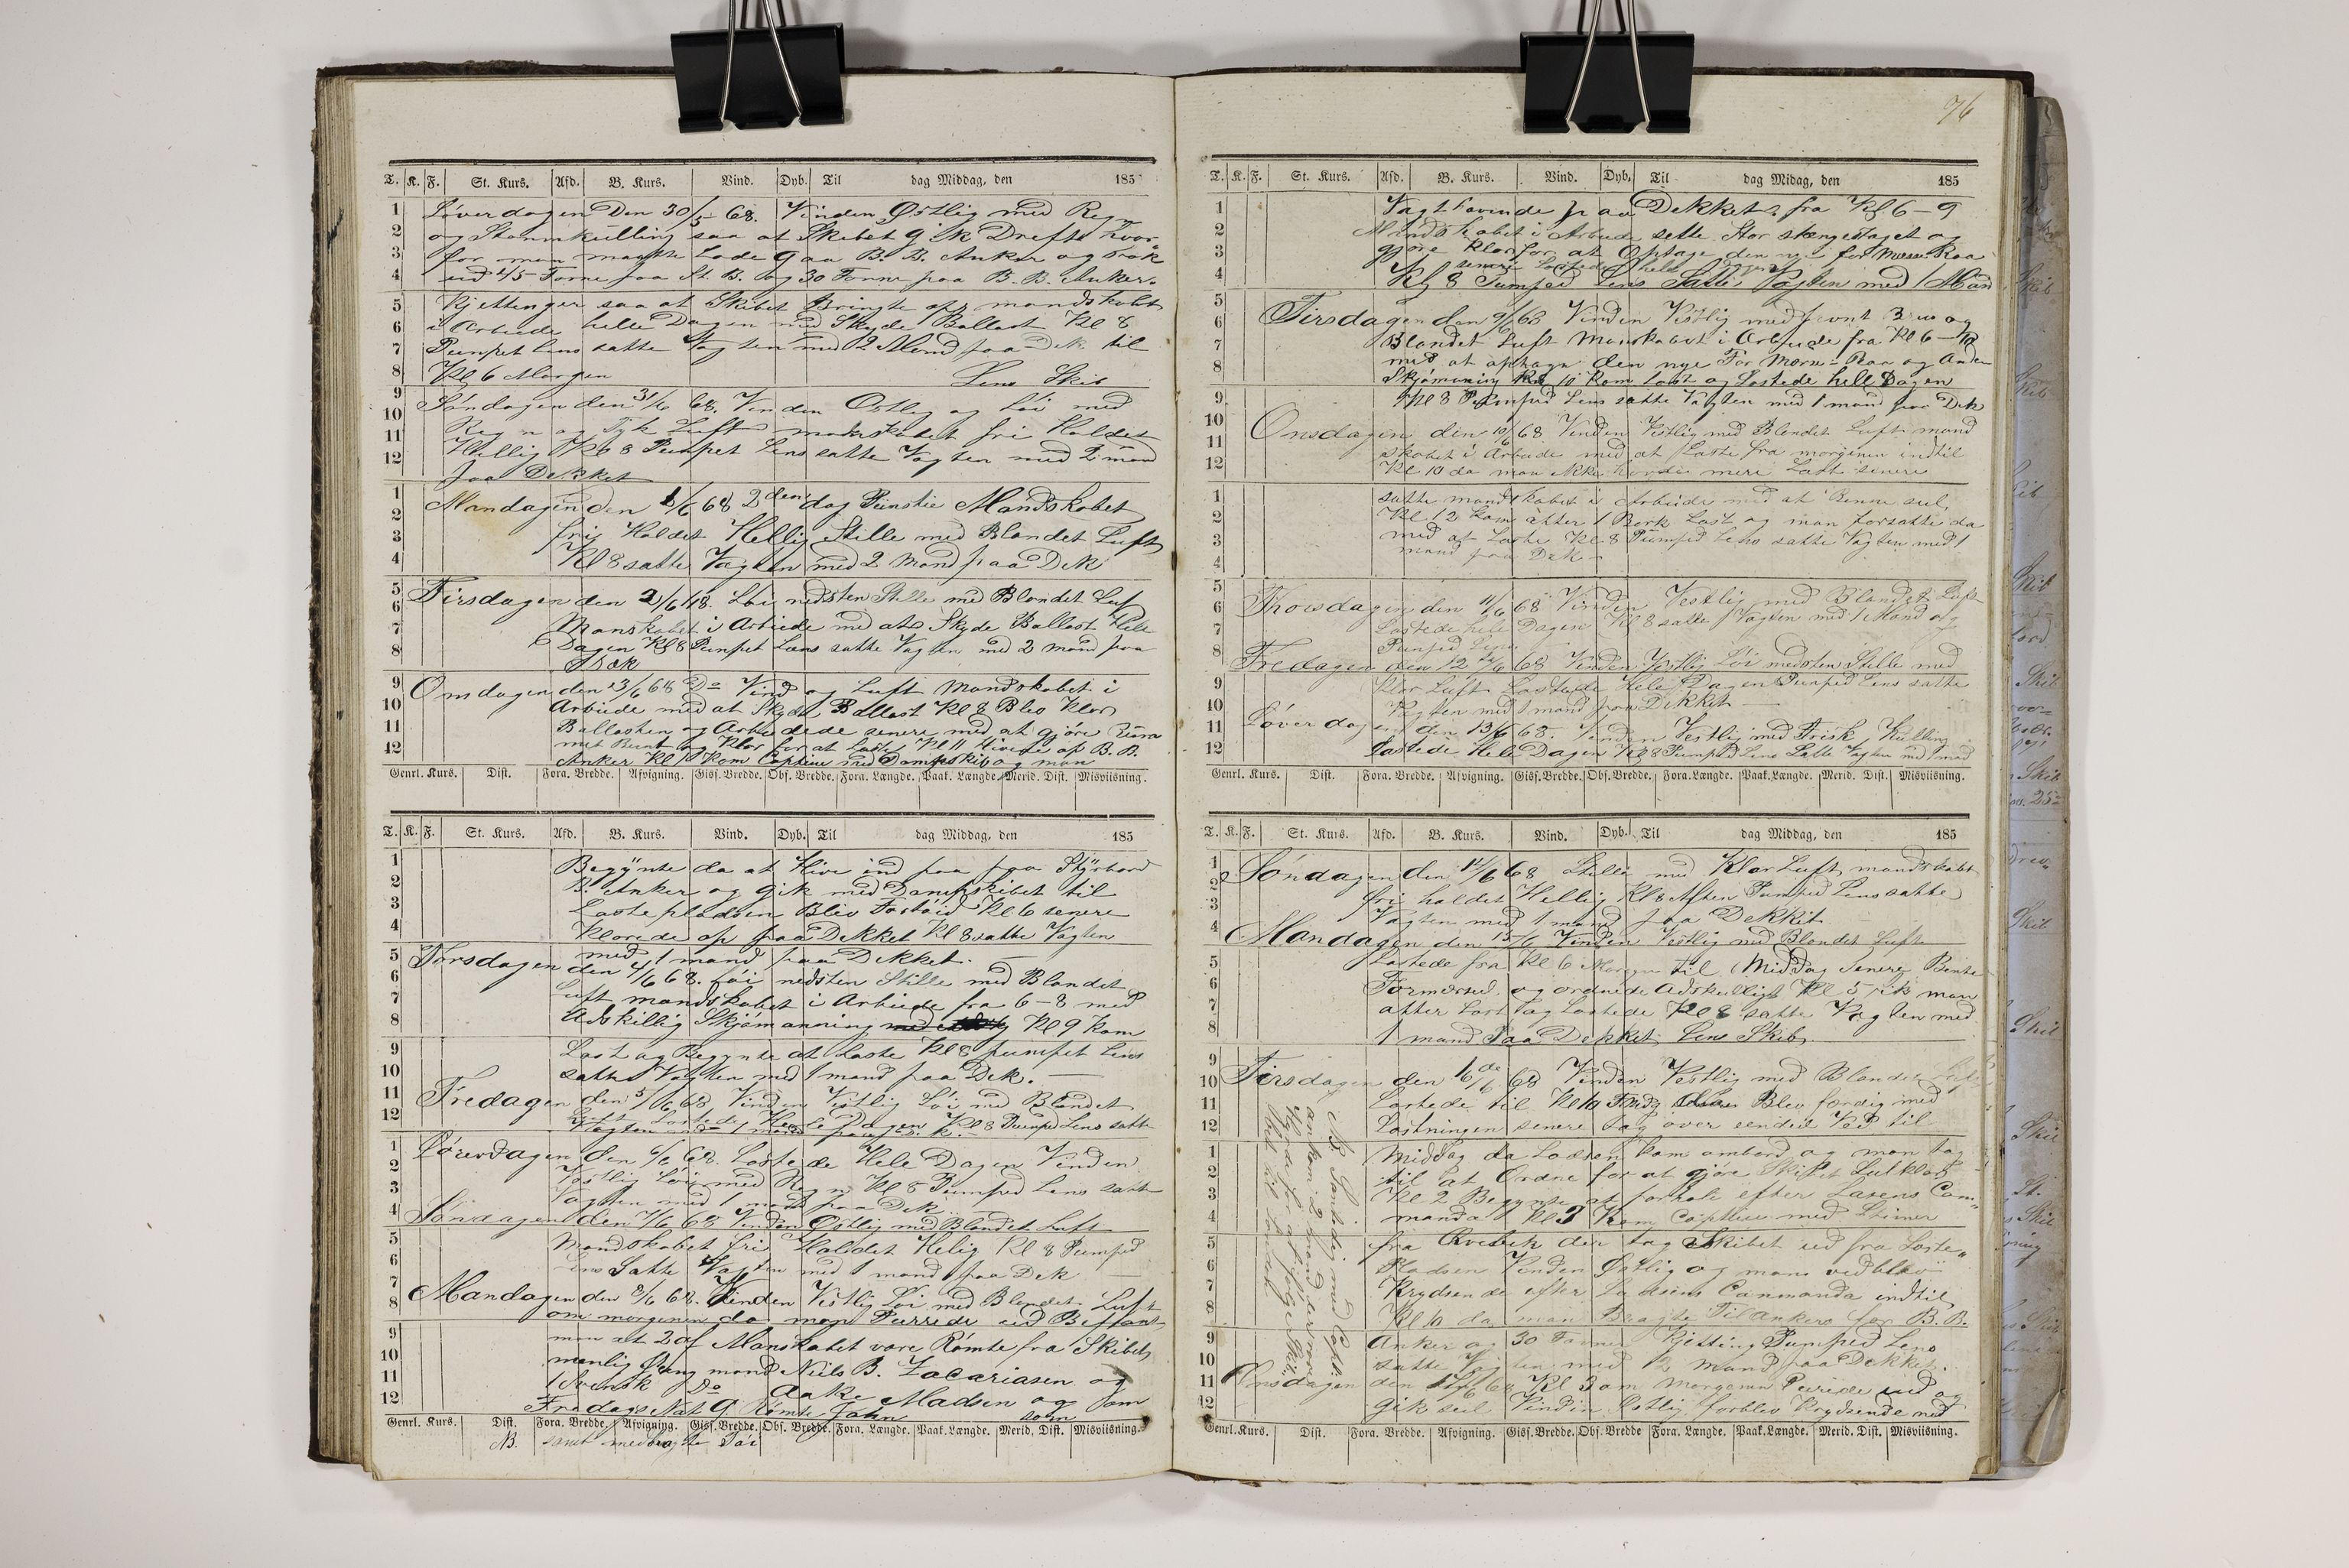 T. K. F. St. Kurs. Afd. B. Kurs. Vind. Dyb. Til dag Middag, den 185
Löverdagen Den 30/5 68. Vinden Östlig med Regn
og Stormkulling saa at Skibet gik Drefti hvor
for man maatte Lade gaa B. B. Anker og stak
ud 45 Favne paa St. B. og 30 Favne paa B. B. Anker
Kjettinger saa at Skibet Bringte op mandskabet
i Arbeide hele Dagen med Skyde Ballast Kl 8
Pumpet Lens satte Vagten med 2 Mand paa Dek til
Kl 6 Morgen Lens Skib
Söndagen den 31/6 68. Vinden Östlig og Löi med
Regn og Tyk Luft mandskabet fri Holdet
Hellig Kl 8 Pumpet Lens satte Vagten med 2 mand
paa Dekket
Mandagen den 1/6 68 2den dag Pinstie Mandskabet
fri Holdet Hellig Stille med Blandet Luft
Kl 8 satte Vagten med 2 Mand paa Dek
Tirsdagen den 2/6 68. Löi nesten Stille med Blandet Luf
Manskabet i Arbeide med at Skyde Ballast Hele
Dagen Kl 8 Pumpet Lens satte Vagten med 2 mand paa
Dæk
Onsdagen den 3/6 68 Do Vind og Luft Mandskabet i
Arbeide med at Skyde Ballast Kl 8 Blev Klar
Ballasten og Arbeidede senere med at gjöre
Klar for at Laste Kl 11 Hivede op B. B.
Anker Kl 1 Kom Captein med Dampskib og man
Genrl. Kurs. Dist. Fora. Bredde. Afvigning. Gisf. Bredde. Obs. Bredde. Fora. Længde. Paak. Længde. Merid. Dist. Misviisning.
T. K. F. St. Kurs. Afd. B. Kurs. Vind. Dyb. Til dag Middag, den 185
Begynte da at Hive ind paa Styrbord
B. Anker og gik med Dampskibet til
Lastepladsen Blev Fastöiet Kl 6 senere
Klarede op paa Dekket Kl 8 satte Vagten
med 1 mand paa Dekket.
Torsdagen den 4/6 68. Löi nesten Stille med Blandet
Luft mandskabet i Arbeide fra 6–8 med
Adskillig Skjömanning Kl 9 kom
Last og Begynte at Laste Kl 8 pumpet Lens
satte Vagten med 1 mand paa Dek.
Fredagen den 5/6 68 Vinden Vestlig Löi med Blandet
Luft Lastede Hele Dagen Kl 8 Pumped Lens satte
Vagten med 1 mand paa Dek.
Löverdagen den 6/6 68. Lastede Hele Dagen Vinden
Vestlig Löi med Regn Kl 8 Pumped Lens satte
Vagten med 1 mand paa Dek.
Söndagen den 7/6 68 Vinden Östlig med Blandet Luft
Mandskabet fri Holdet Helig Kl 8 Pumped
Lens Satte Vagten med 1 mand paa Dek
Mandagen den 8/6 68. Vinden Vestlig Löi med Blandet Luft
om morgenen da man Purrede ud Beffant
man at 2 af Manskabet vare Römte fra Skibet
menlig mand Niels B. Zacariasen og
1 Svensk Do Aake Madsen og som
Fredags Nat 9 Römte John
Genrl. Kurs. Dist. Fora. Bredde. Afvigning. Gisf. Bredde. Obs. Bredde. Fora. Længde. Paak. Længde. Merid. Dist. Misviisning.
NB. samt medbragte Töi
96
T. K. F. St. Kurs. Afd. B. Kurs. Vind. Dyb. Til dag Midag, den 185
Vagt havende paa Dekket fra Kl 6–9
Mandskabet i Arbeide sette Stor stængestaget og
gjöre klar for at Optage den nye for Raa
senere Lastede hele Dagen
Kl 8 Pumped Lens Satte Vagten med 1 Man
Tirsdagen den 9/6 68 Vinden Vestlig med og
Blandet Luft Manskabet i Arbeide fra Kl 6–10
med at optage den nye For Raa og Anden
Skjömanning Kl 10 Kom last og Lastede hele Dagen
Kl 8 Pumped Lens satte Vagten med 1 mand paa Dek
Onsdagen den 10/6 68 Vinden Vestlig med Blandet Luft mand
skabet i Arbeide med at Laste fra morgenen indtil
Kl 10 da man ikke havde mere Last senere
satte mandskabet i Arbeide med at
Kl 2 kom atter 1 Last og man forsatte da
med at Laste Kl 8 Pumped Lens satte Vagten med 1
mand paa Dek
Thorsdagen den 11/6 68 Vinden Vestlig med Blandet Luft
Lastede hele Dagen Kl 8 satte Vagten med 1 Mand og
Pumped Lens
Fredagen den 12/6 68 Vinden Vestlig Löi nesten Stille med
Klar Luft Lastede Hele Dagen Pumped Lens satte
Vagten med 1 mand paa Dekket
Löverdagen den 13/6 68. Vinden Vestlig med Frisk Kulling
Lastede Hele Dagen Kl 8 Pumped Lens Satte Vagten med 1 mand
Genrl. Kurs. Dist. Fora. Bredde. Afvigning. Gisf. Bredde. Obs. Bredde. Fora. Længde. Paak. Længde. Merid. Dist. Misviisning.
T. K. F. St. Kurs. Afd. B. Kurs. Vind. Dyb. Til dag Middag, den 185
Söndagen den 14/6 68 Stille med Klar Luft mandskabet
fri holdet Hellig Kl 8 Aften Pumped Lens satte
Vagten med 1 mand paa Dekket
Mandagen den 15/6 Vinden Vestlig med Blandet Luft
Lastede fra Kl 6 Morgen til Middag Senere
og ordnede Adskilligt Kl 5 fik man
atter Last og Lastede Kl 8 satte Vagten med
1 mand Paa Dekket Lens Skib.
Tirsdagen den 16de/6 68 Vinden Vestlig med Blandet Luft
Lastede til Kl 10 Blev færdig med
Lastningen senere tag over endeel Ved til
Middag da Lodsen kom ombord og man tog
til at Ordne for at gjöre Skibet Seilklart
Kl 2 Begynte at forhale efter Lasens Com
manda Kl 3 Kom Captein med Stimer
fra der tog Skibet ud fra Laste
Pladsen Vinden Östlig og man vedblev
Krydsende efter Lodsens Commanda indtil
Kl 10 da man Bragte Til Ankers for B. B.
Anker og 30 Favner Kjetting Pumped Lens
satte Vagten med 2 Mand paa Dekket.
Onsdagen den 17/6 68 Kl 3 om Morgenen Purrede ud og
Gik seil Vinden Östlig forblev Krydsende ned
Genrl. Kurs. Dist. Fora. Bredde. Afvigning. Gisf. Bredde. Obs. Bredde Fora. Længde. Paak. Længde. Merid. Dist. Misviisning.